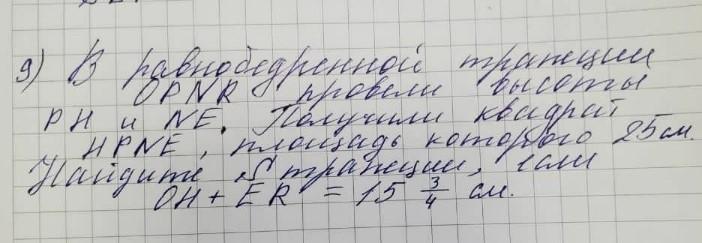 9) В равнобедренной трапеции
OPNR провели высоты
PH и NE. Получили квадрат
HPNE, площадь которого 25 см.
Найдите S трапеции, если
OH + ER = 15 3/4 см.